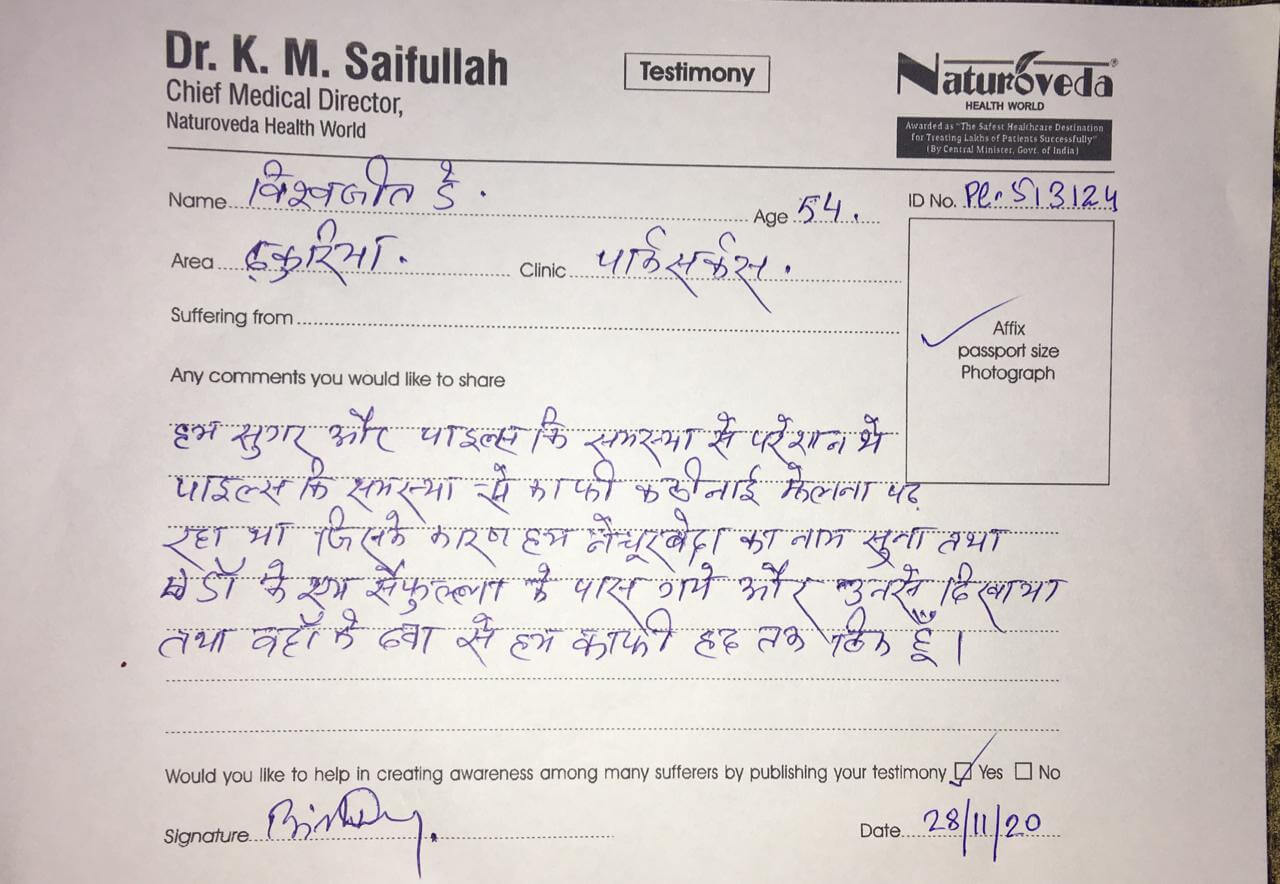 Dr. K. M. Saifullah
Chief Medical Director,
Naturoveda Health World
Testimony
Naturoveda®
HEALTH WORLD
Awarded as "The Safest Healthcare Destination
for Treating Lakhs of Patients Successfully"
(By Central Minister, Govt. of India)
Name विश्वजीत डे. Age 54. ID No. PC-513124
Area ढ़कुरिया. Clinic पार्कसर्कस.
Suffering from
Affix
passport size
Photograph
Any comments you would like to share
हम सुगर और पाइल्स कि समस्या से परेशान थे
पाइल्स कि समस्या से काफी कठीनाई झेलना पढ़
रहा था जिसके कारण हम नैचूरबेदा का नाम सुना तथा
डॉ के एम सैफुल्ला के पास गये और उनसे दिखाया
तथा वहाँ के दवा से हम काफी हद तक ठिक हूँ।
Would you like to help in creating awareness among many sufferers by publishing your testimony Yes No
Signature
Date 28/11/20